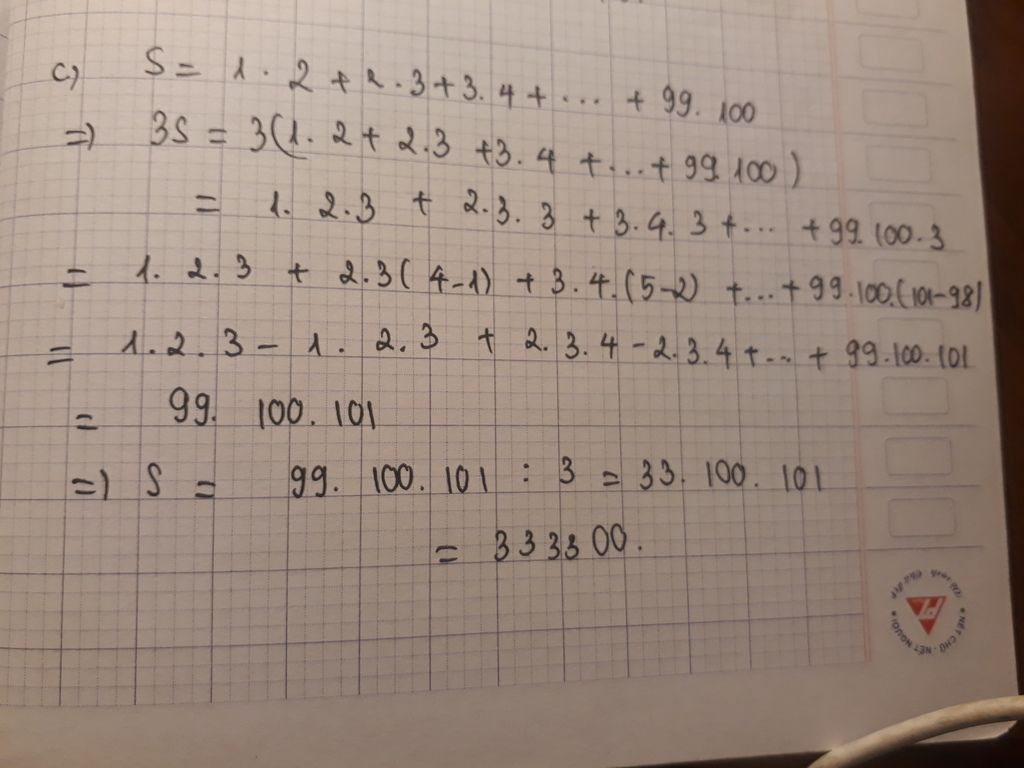 c) S = 1. 2 + 2.3 + 3. 4 + ... + 99. 100
=) 3S = 3(1. 2 + 2.3 + 3. 4 + ... + 99.100)
= 1. 2.3 + 2.3. 3 + 3.4. 3 + ... + 99.100.3
= 1. 2. 3 + 2.3( 4-1) + 3.4.(5-2) + ... + 99.100.(101-98)
= 1.2.3 - 1. 2.3 + 2.3.4 - 2.3.4 + ... + 99.100.101
= 99. 100.101
=) S = 99. 100. 101 : 3 = 33. 100. 101
= 333300.
NÉT CHỮ - NẾT NGƯỜI